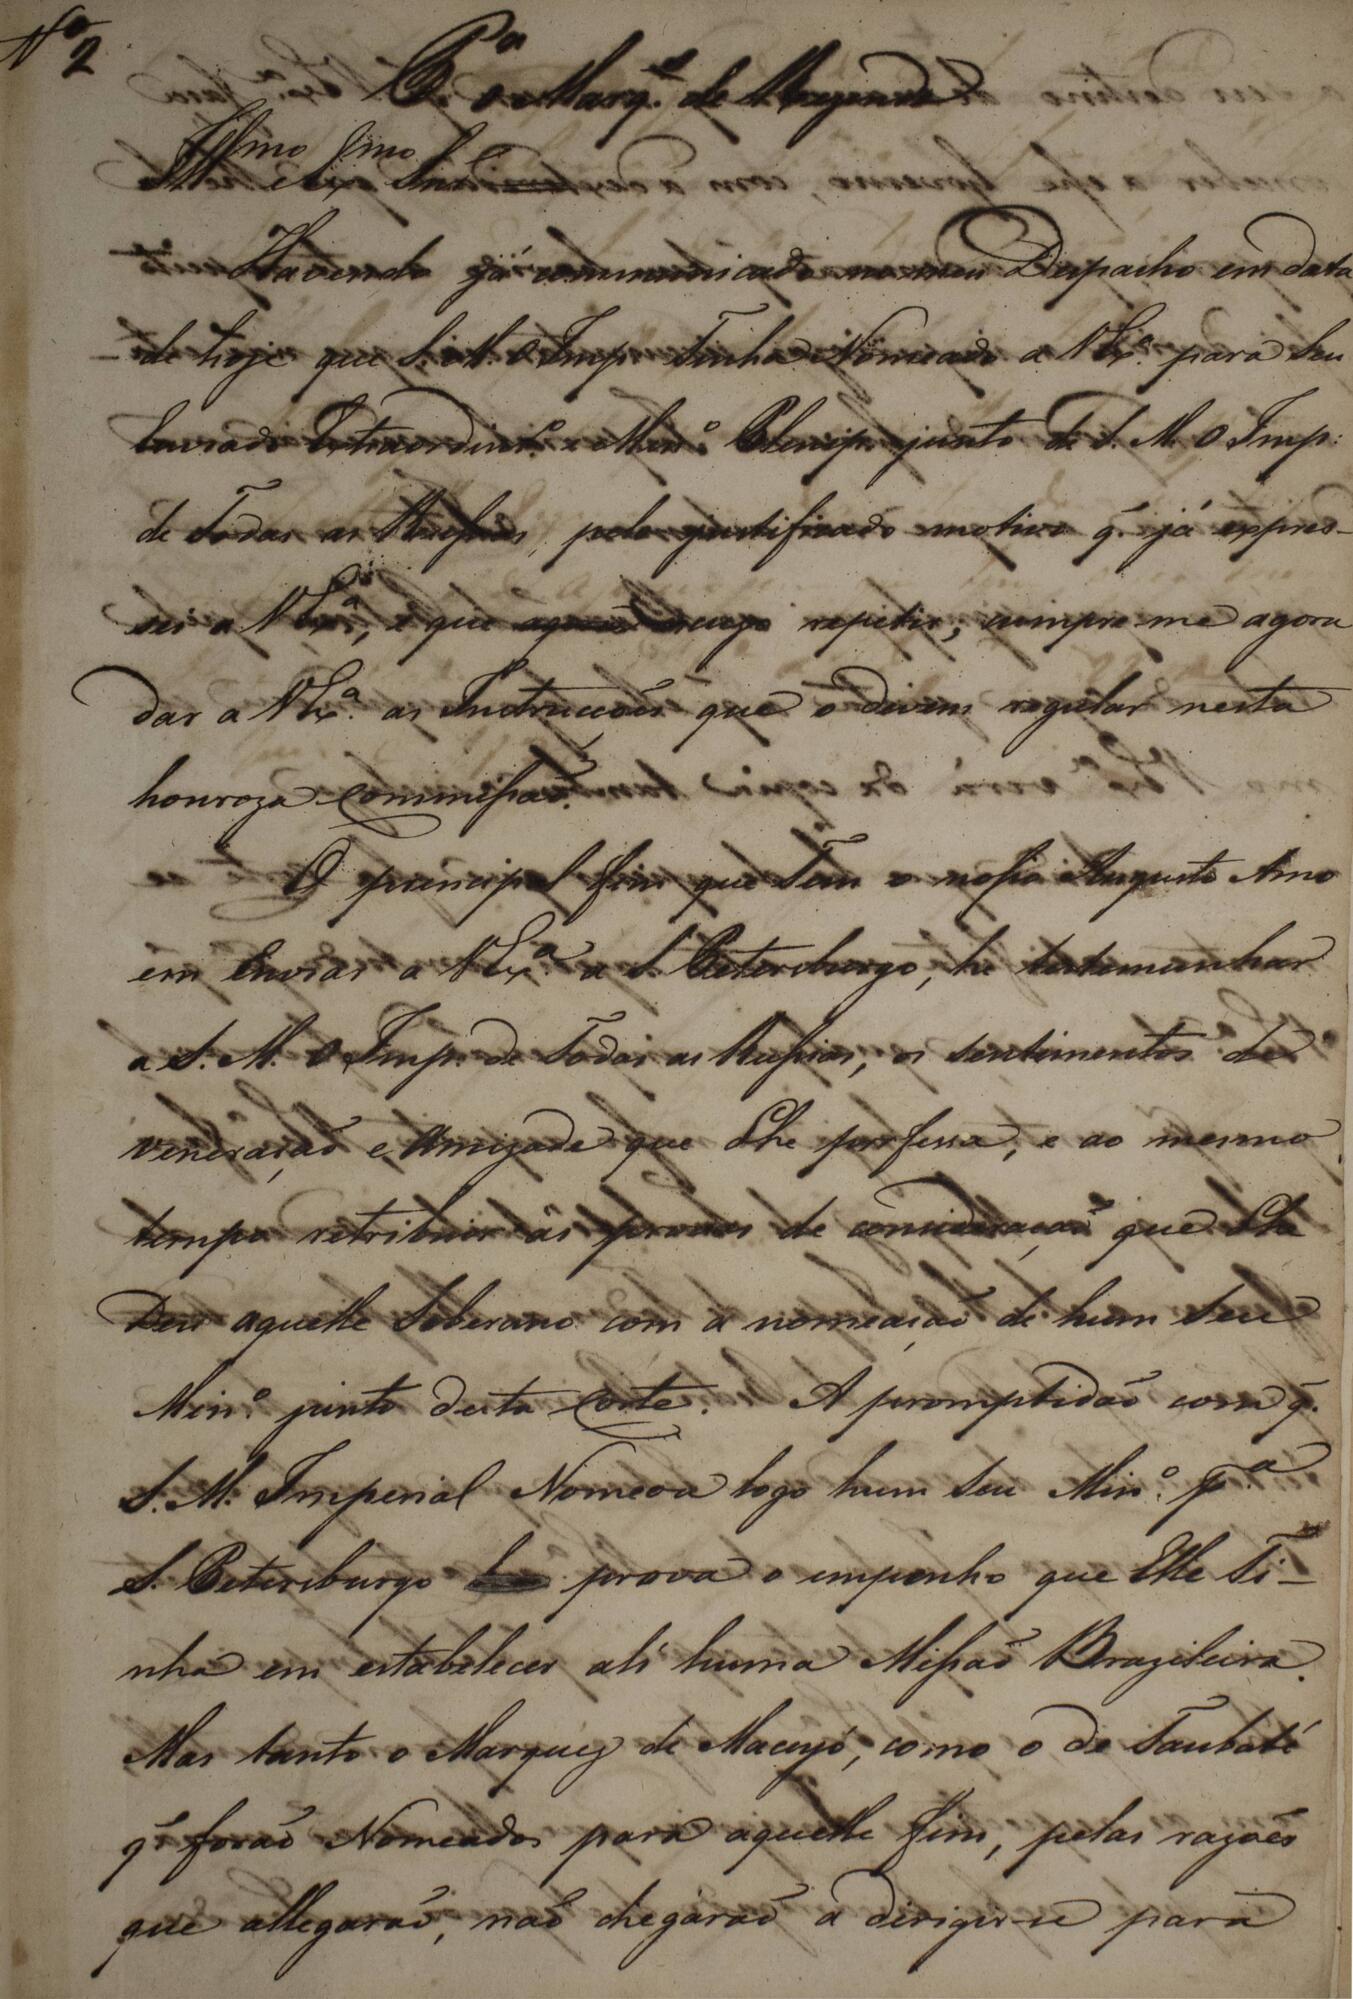 Nº 2
Pª o Marqz. de Rezende
Illmo Exmo Snr
Havendo já communicado no meu Despacho em data
de hoje que S. M. O Imp. Tinha Nomeado a V Exª. para Seu
Enviado Extraordinrº. e Minº. Plenip. junto de S. M. O Imp:
de Todas as Russias, pelo justificado motivo q. já expres-
sei a V Exª, e que repetir, cumpre-me agora
dar a V Exª. as Instrucções que o devem regular nesta
honroza Commissaõ.
O principal fim que Tem o nosso Augusto Amo
em Enviar a V Exª a S. Petersburgo, he testemunhar
a S. M. O Imp. de Todas as Russias, os sentimentos de
veneração e Amizade que Lhe professa, e ao mesmo
tempo retribuir ás provas de consideraçaõ que Lhe
Deu aquelle Soberano com a nomeaçaõ de hum Seu
Minº. junto desta Corte. A promptidaõ com q.
S. M. Imperial Nomeou logo hum Seu Minº. pª
S. Petersburgo prova o empenho que Elle Ti-
nha em estabelecer ali huma Missaõ Brazileira.
Mas tanto o Marquez de Maceyó, como o de Taubaté
q. foraõ Nomeados para aquelle fim, pelas razões
que allegaraõ, naõ chegáraõ a dirigir-se para